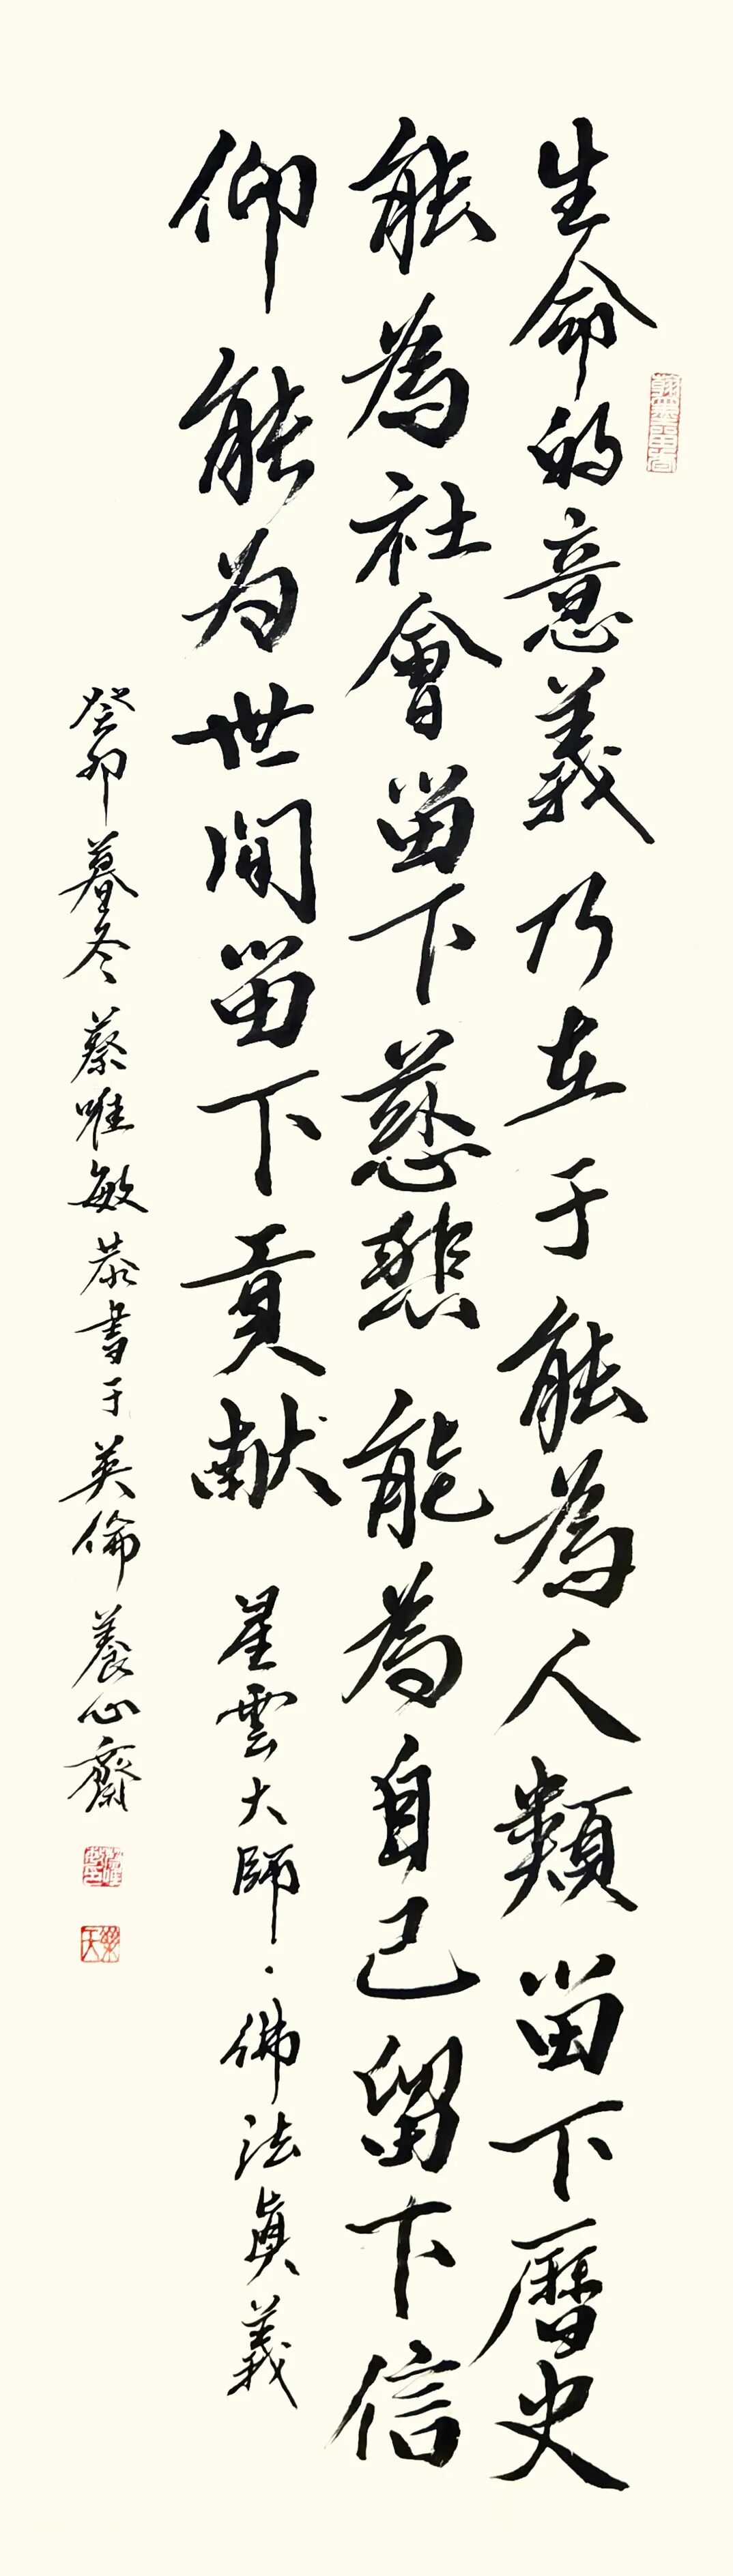 生命的意義乃在于能為人類留下曆史
能為社會留下慈悲能為自己留下信
仰能为世間留下貢献
星雲大師·佛法真義
癸卯暮冬蔡唯敏恭書于英倫養心齋